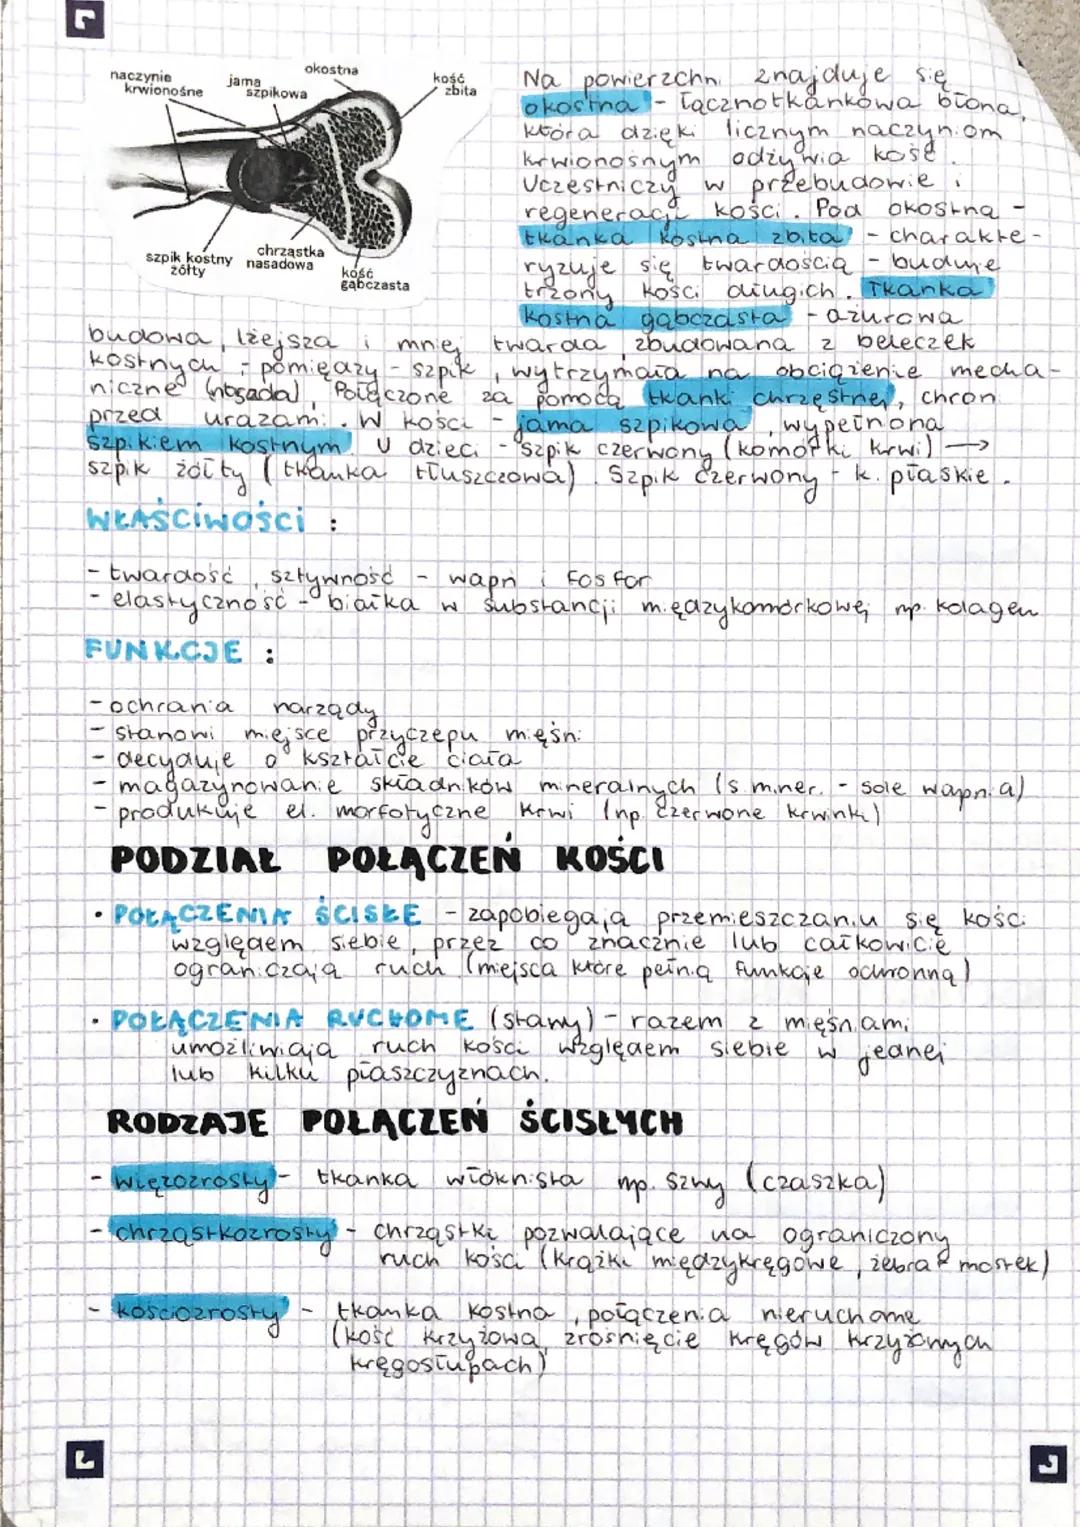 naczynie krwionośne
jama szpikowa
okostna
kość zbita
szpik kostny żółty
chrząstka nasadowa
kość gąbczasta
Na powierzchni znajduje się
okostna - łącznotkankowa błona,
która dzięki licznym naczyniom
krwionośnym odżywia kość.
Uczestniczy w przebudowie i
regeneracji kości. Pod okostną -
tkanka kostna zbita - charakte-
ryzuje się twardością - buduje
trzony kości długich. Tkanka
kostna gąbczasta - ażurowa
budowa, lżejsza i mniej twarda, zbudowana z beleczek
kostnych - pomiędzy - szpik, wytrzymała na obciążenie mecha-
niczne (nasada). Połączone za pomocą tkanki chrzęstnej, chroni
przed urazami. W kości - jama szpikowa, wypełniona
szpikiem kostnym. U dzieci - szpik czerwony (komórki krwi) →
szpik żółty (tkanka tłuszczowa). Szpik czerwony - k. płaskie.
WŁAŚCIWOŚCI :
- twardość, sztywność - wapń i fosfor
- elastyczność - białka w substancji międzykomórkowej np. kolagen
FUNKCJE :
- ochrania narządy
- stanowi miejsce przyczepu mięśni
- decyduje o kształcie ciała
- magazynowanie składników mineralnych (s. miner. - sole wapnia)
- produkuje el. morfotyczne krwi (np. czerwone krwinki)
PODZIAŁ POŁĄCZEŃ KOŚCI
• POŁĄCZENIA ŚCISŁE - zapobiegają przemieszczaniu się kości
względem siebie, przez co znacznie lub całkowicie
ograniczają ruch (miejsca które pełnią funkcje ochronną)
• POŁĄCZENIA RUCHOME (stawy) - razem z mięśniami
umożliwiają ruch kości względem siebie w jednej
lub kilku płaszczyznach.
RODZAJE POŁĄCZEŃ ŚCISŁYCH
- więzozrosty - tkanka włóknista np. szwy (czaszka)
- chrząstkozrosty - chrząstki pozwalające na ograniczony
ruch kości (krążki międzykręgowe, żebra + mostek)
- kościozrosty - tkanka kostna, połączenia nieruchome
(kość krzyżowa, zrośnięcie kręgów krzyżowych
kręgosłupach)